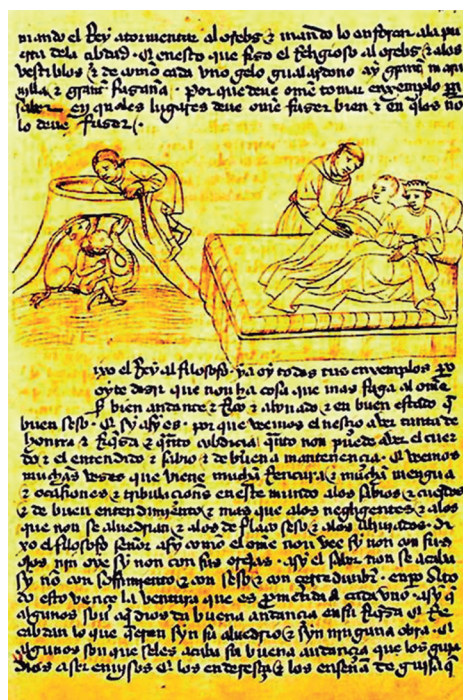 mando el Rey atormentar al orebs & mando lo enforcar ala pu
erta dela cibdad . & en esto que fizo el Religioso al orebs & alos
vestiblos & de como cada vno gelo gualardono ay grant mara
villa & grant fazaña . por que deue ome tomar enxemplo
saber en quales lugares deue ome fazer bien & en qlos no
lo deue fazer .
ixo el Rey al filosofo . ya oy todas tus enxemplos
oyte desir que non ha cosa que mas faga al ome
bien andante & Rico & alunado & en buen estado q
buen seso . & sy asy es . por que veemos el nesçio aver tanta de
honrra & Rqsa & qnto cubdiçia qnto non puede aver el cuer
do & el entendido & sabio & de buena mantenençia . & veemos
muchas veses que viene mucha Rencura & mucha mengua
& ocasiones & tribulaçiones en este mundo alos sabios & cuerdos
& de buen entendimiento & mas que alos negligentes & alos
que non se & alos de flaco seso & alos . di
xo el filosofo señor asy como el ome non vee sy non con sus
ojos nin oye sy non con sus orejas . asy el saber non se acaba
sy no con sofrimiento & con seso & con çertedunbr . enpo
do esto vençe la ventura que es prometida a cada vno . asy q
algunos son q dios da buena andança en su Rqsa & Re
cabdan lo que qeren syn su aluedrio & syn ninguna obra . &
algunos son que seles acaba su buena andança que los guia
dios a ser enuisos & los endereça & los enseña de guisa q